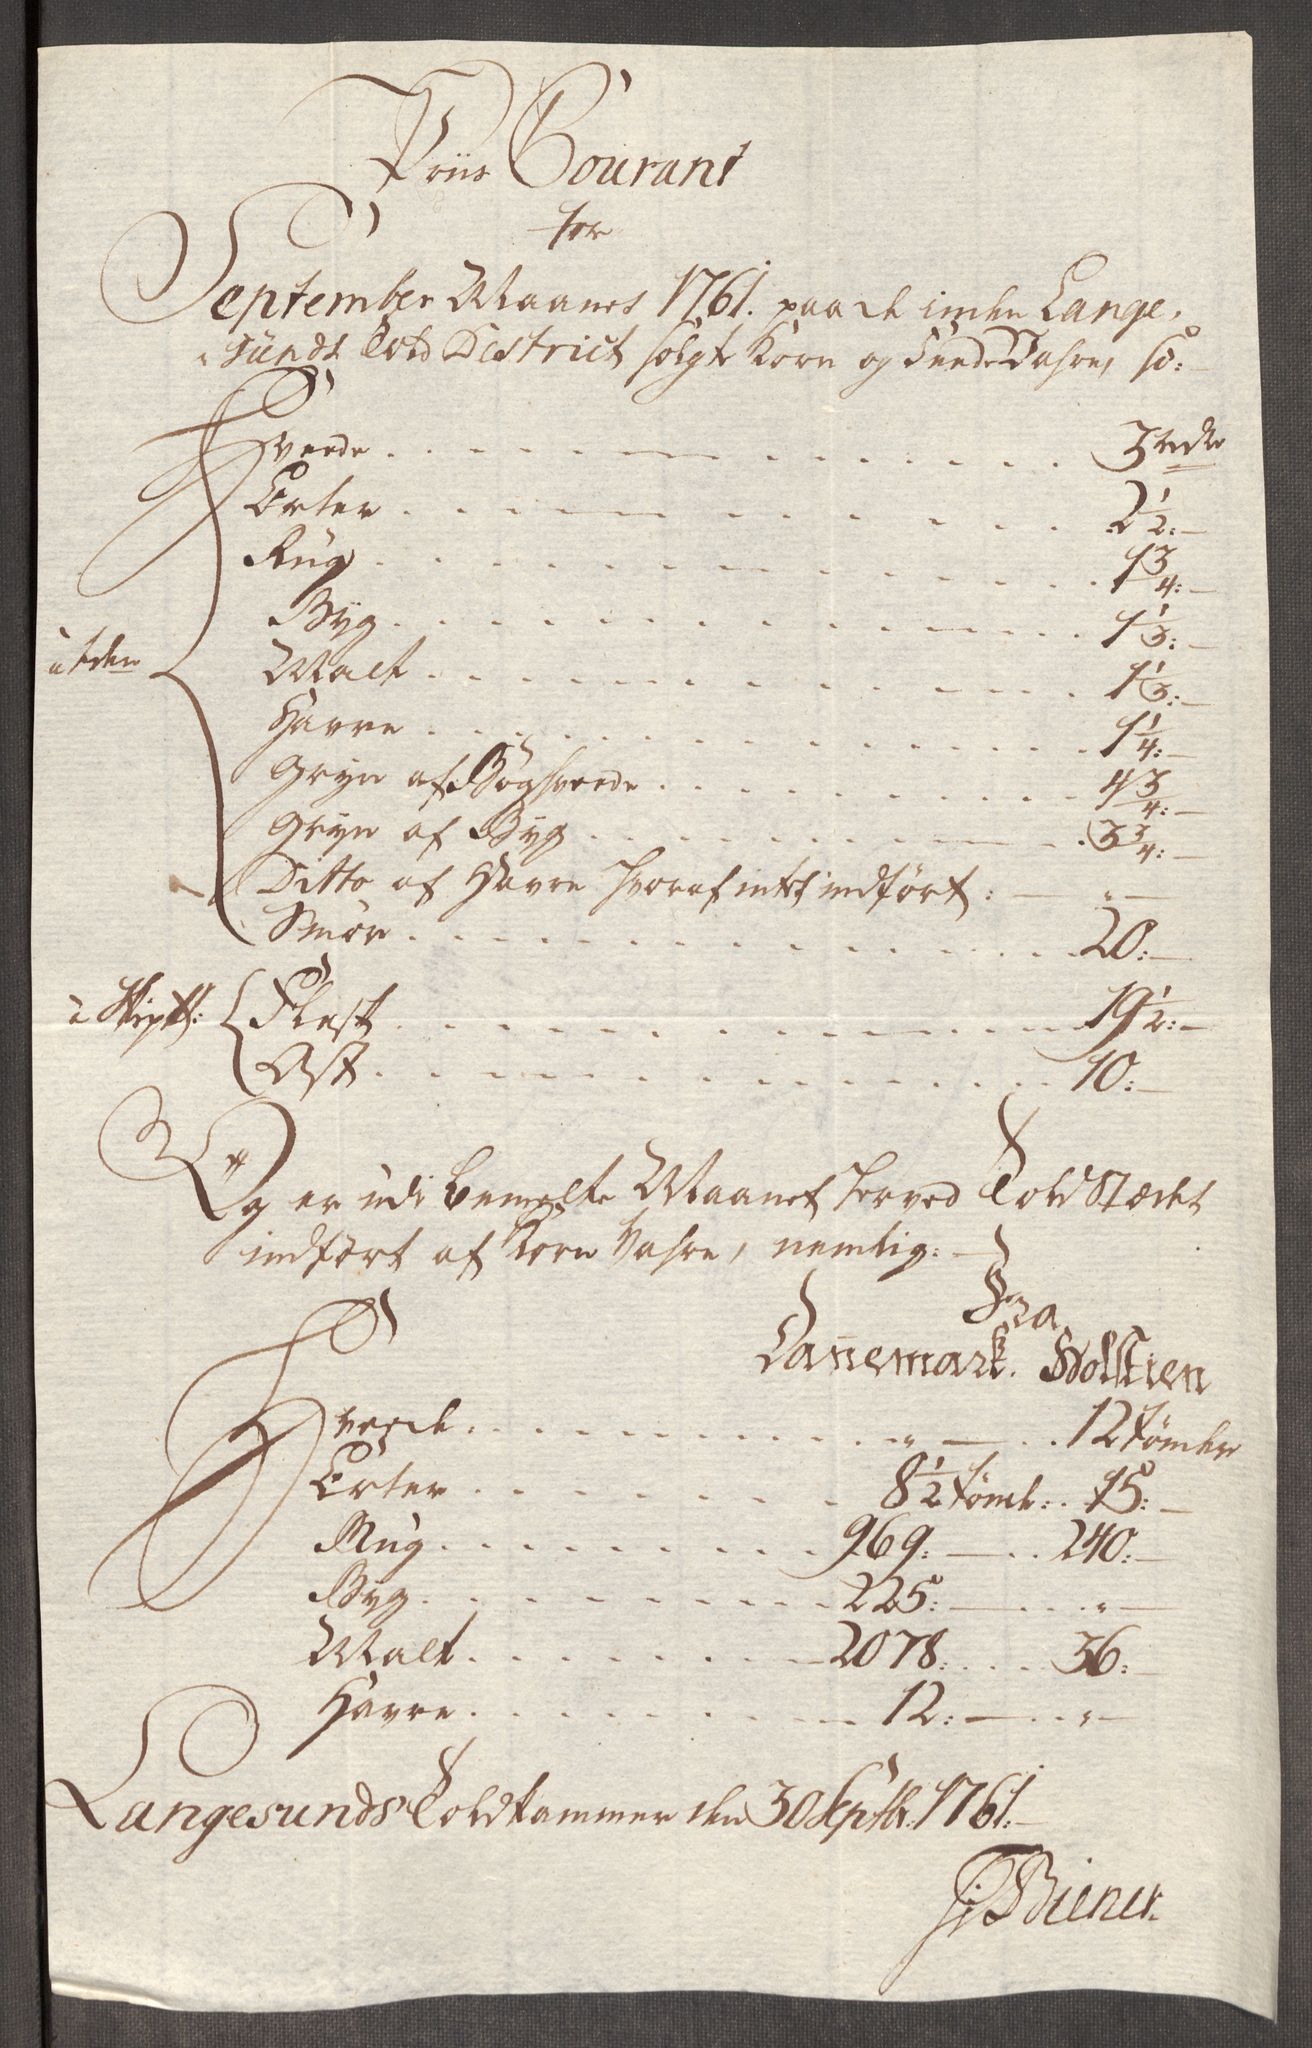 Priis Courant
for
September Maanet 1761. paa de inden Lange-
sunds Told District solgte Korn og Feede Vahre, so:
Hvede 3 rdlr
Erter 2 1/2:
Rug 1 3/4:
Byg 1 1/3:
à tden Malt 1 1/3:
Havre 1 1/4:
Gryn af Boghvede 4 3/4:
Gryn af Byg 3 3/4:
Ditto af Havre hvoraf intet indført: "
Smör 20:
à Skip℔: Flesk 19 1/2:
Ost 10:
Og er udi bemelte Maanet herved Toldstædet
indført af Korn Vahre, nemlig:
Fra
Danemark. Holstien
Hvede " 12 tönder
Erter 8 1/2 tönd: 15:
Rug 969: 240:
Byg 225: "
Malt 2078: 36:
Havre 12: "
Langesunds Toldkammer den 30 Septbr: 1761.